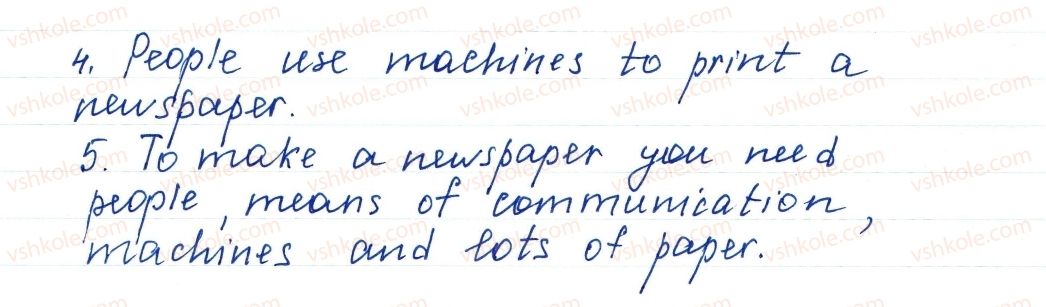 4. People use machines to print a
newspaper.
5. To make a newspaper you need
people, means of communication,
machines and lots of paper.